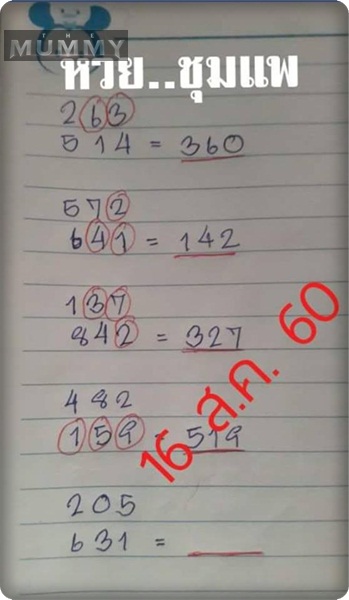 THE
MUMMY
หวย..ชุมแพ
263
514 = 360
572
641 = 142
137
842 = 327
482
159 = 519
16 ส.ค. 60
205
631 =